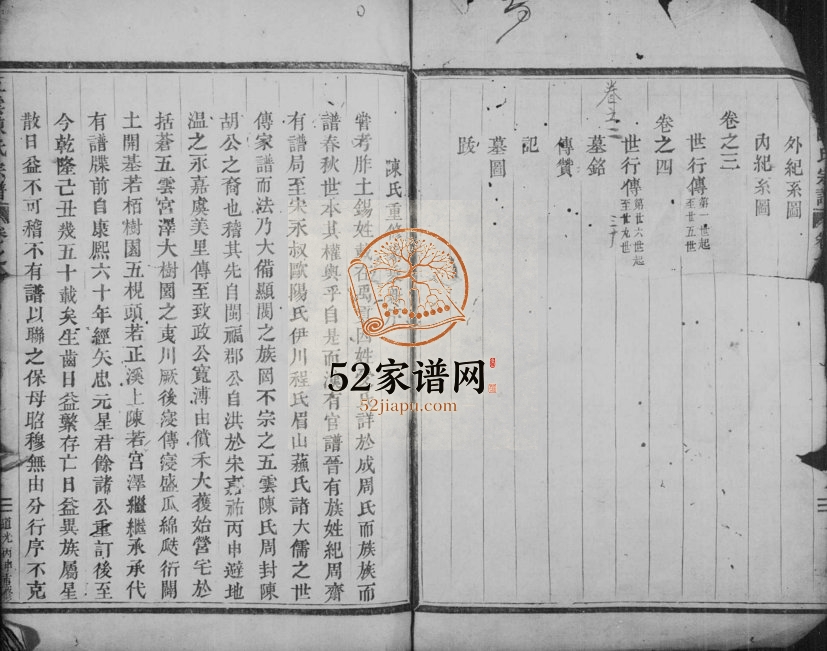 外紀系圖
內紀系圖
卷之三
世行傳 第一世起 至廿五世
卷之四
世行傳 第廿六世起 至卅九世
卷五
墓銘
傳贊
記
墓圖
跋
陳氏重
嘗考胙土錫姓載在禹 姓 詳於成周氏而族族而
譜春秋世本其權輿乎自是而 有官譜晉有族姓紀周齊
有譜局至宋永叔歐陽氏伊川程氏眉山蘓氏諸大儒之世
傳家譜而法乃大備顯閥之族罔不宗之五雲陳氏周封陳
胡公之裔也稽其先自閩福郡公自洪於宋嘉祐丙申避地
温之永嘉虞美里傳至致政公寬溥由僨禾大獲始營宅於
括蒼五雲宮澤大樹園之夷川厥後寖傳寖盛瓜綿瓞衍開
土開基若栢樹園五梘頭若正溪上陳若宮澤繼繼承承代
有譜牒前自康熙六十年經矢忠元星君餘諸公重訂後至
今乾隆己丑幾五十載矣生齒日益繁存亡日益異族屬星
散日益不可稽不有譜以聯之保毋昭穆無由分行序不克
氏宗譜
道光丙申重修
52家谱网
52jiapu.com